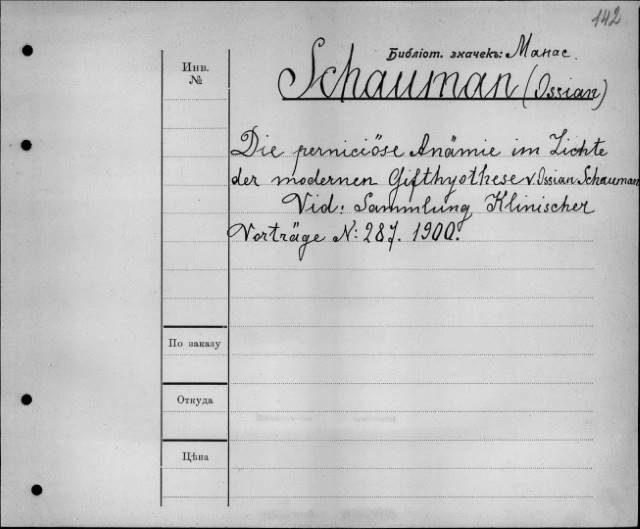 142
Библіот. значекъ: Манас.
Инв.
№
Schauman (Ossian)
Die perniciöse Anämie im Lichte
der modernen Gifthyothese v. Ossian Schauman
Vid: Sammlung Klinischer
Vorträge N: 287. 1900.
По заказу
Откуда
Цѣна